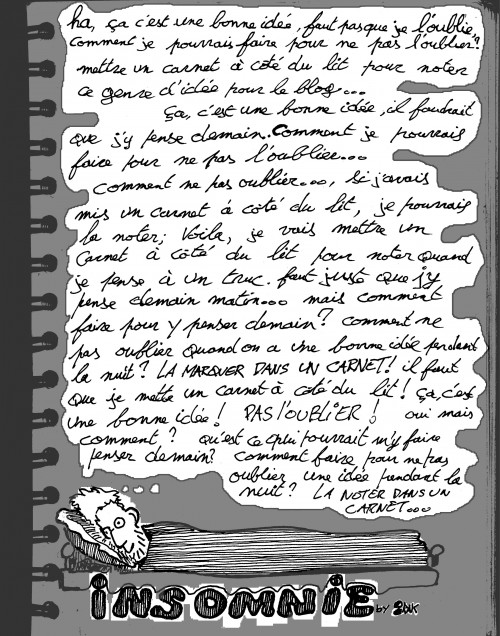 ha, ça c'est une bonne idée, faut pas que je l'oublie,
Comment je pourrais faire pour ne pas l'oublier?
mettre un carnet à côté du lit pour noter
ce genre d'idée pour le blog...
ça, c'est une bonne idée, il faudrait
que j'y pense demain. Comment je pourrais
faire pour ne pas l'oublier...
comment ne pas oublier..., si j'avais
mis un carnet à côté du lit, je pourrais
la noter; Voila, je vais mettre un
carnet à côté du lit pour noter quand
je pense à un truc. faut juste que j'y
pense demain matin... mais comment
faire pour y penser demain? comment ne
pas oublier quand on a une bonne idée pendant
la nuit? LA MARQUER DANS UN CARNET! il faut
que je mette un carnet à côté du lit! ça, c'est
une bonne idée! PAS l'OUBLIER! oui mais
comment? qu'est ce qui pourrait m'y faire
penser demain? comment faire pour ne pas
oublier une idée pendant la
nuit? LA NOTER DANS UN
CARNET...
INSOMNIE by